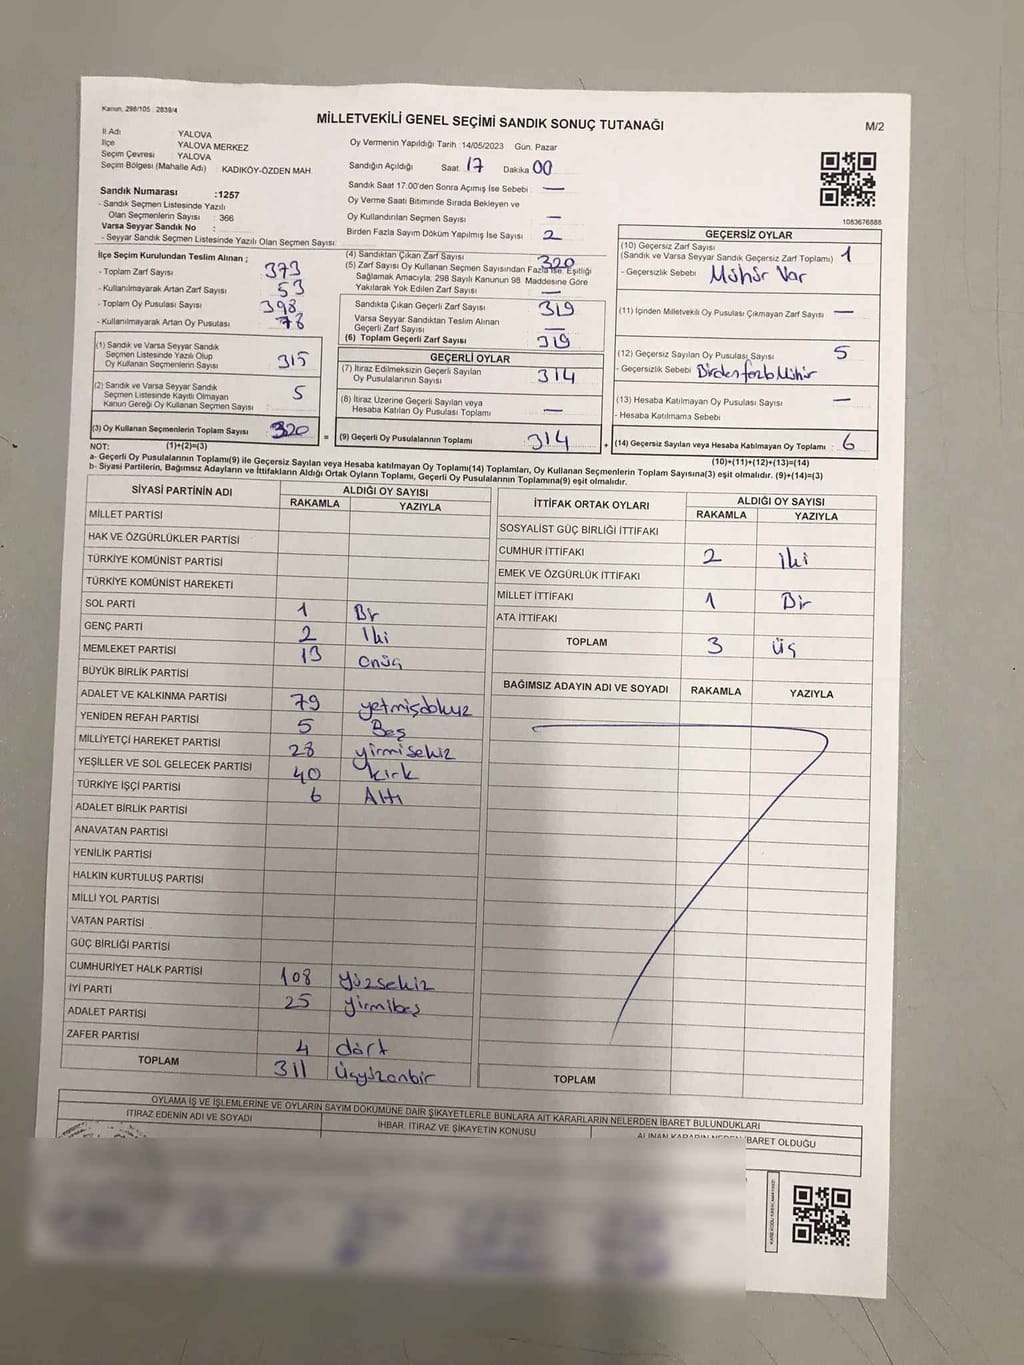 Kanun, 298/105 , 2839/4
MİLLETVEKİLİ GENEL SEÇİMİ SANDIK SONUÇ TUTANAĞI
M/2
İl Adı YALOVA
İlçe YALOVA MERKEZ
Seçim Çevresi YALOVA
Seçim Bölgesi (Mahalle Adı) : KADIKÖY-ÖZDEN MAH
Sandık Numarası :1257
- Sandık Seçmen Listesinde Yazılı
Olan Seçmenlerin Sayısı : 366
Varsa Seyyar Sandık No :
- Seyyar Sandık Seçmen Listesinde Yazılı Olan Seçmen Sayısı:
Oy Vermenin Yapıldığı Tarih : 14/05/2023 Gün. Pazar
Sandığın Açıldığı Saat: 17 Dakika 00
Sandık Saat 17.00'den Sonra Açımış İse Sebebi : —
Oy Verme Saati Bitiminde Sırada Bekleyen ve
Oy Kullandırılan Seçmen Sayısı : —
Birden Fazla Sayım Döküm Yapılmış İse Sayısı : 2
1083676888
İlçe Seçim Kurulundan Teslim Alınan ;
- Toplam Zarf Sayısı : 373
- Kullanılmayarak Artan Zarf Sayısı : 53
- Toplam Oy Pusulası Sayısı : 398
- Kullanılmayarak Artan Oy Pusulası : 78
(1) Sandık ve Varsa Seyyar Sandık
Seçmen Listesinde Yazılı Olup
Oy Kullanan Seçmenlerin Sayısı : 315
(2) Sandık ve Varsa Seyyar Sandık
Seçmen Listesinde Kayıtlı Olmayan
Kanun Gereği Oy Kullanan Seçmen Sayısı : 5
(3) Oy Kullanan Seçmenlerin Toplam Sayısı : 320
(1)+(2)=(3)
(4) Sandıktan Çıkan Zarf Sayısı : 320
(5) Zarf Sayısı Oy Kullanan Seçmen Sayısından Fazla İse, Eşitliği
Sağlamak Amacıyla; 298 Sayılı Kanunun 98. Maddesine Göre
Yakılarak Yok Edilen Zarf Sayısı : —
Sandıkta Çıkan Geçerli Zarf Sayısı : 319
Varsa Seyyar Sandıktan Teslim Alınan
Geçerli Zarf Sayısı : —
(6) Toplam Geçerli Zarf Sayısı : 319
GEÇERLİ OYLAR
(7) İtiraz Edilmeksizin Geçerli Sayılan
Oy Pusulalarının Sayısı : 314
(8) İtiraz Üzerine Geçerli Sayılan veya
Hesaba Katılan Oy Pusulası Toplamı : —
= (9) Geçerli Oy Pusulalarının Toplamı : 314 +
GEÇERSİZ OYLAR
(10) Geçersiz Zarf Sayısı
(Sandık ve Varsa Seyyar Sandık Geçersiz Zarf Toplamı) : 1
- Geçersizlik Sebebi : Mühür Var
(11) İçinden Milletvekili Oy Pusulası Çıkmayan Zarf Sayısı : —
(12) Geçersiz Sayılan Oy Pusulası Sayısı : 5
- Geçersizlik Sebebi : Birden fazla Mühür
(13) Hesaba Katılmayan Oy Pusulası Sayısı : —
- Hesaba Katılmama Sebebi :
(14) Geçersiz Sayılan veya Hesaba Katılmayan Oy Toplamı : 6
(10)+(11)+(12)+(13)=(14)
NOT:
a- Geçerli Oy Pusulalarının Toplamı(9) ile Geçersiz Sayılan veya Hesaba katılmayan Oy Toplamı(14) Toplamları, Oy Kullanan Seçmenlerin Toplam Sayısına(3) eşit olmalıdır. (9)+(14)=(3)
b- Siyasi Partilerin, Bağımsız Adayların ve İttifakların Aldığı Ortak Oyların Toplamı, Geçerli Oy Pusulalarının Toplamına(9) eşit olmalıdır.
SİYASİ PARTİNİN ADI ALDIĞI OY SAYISI
RAKAMLA YAZIYLA
MİLLET PARTİSİ
HAK VE ÖZGÜRLÜKLER PARTİSİ
TÜRKİYE KOMÜNİST PARTİSİ
TÜRKİYE KOMÜNİST HAREKETİ
SOL PARTİ 1 Bir
GENÇ PARTİ 2 İki
MEMLEKET PARTİSİ 13 onüç
BÜYÜK BİRLİK PARTİSİ
ADALET VE KALKINMA PARTİSİ 79 yetmişdokuz
YENİDEN REFAH PARTİSİ 5 Beş
MİLLİYETÇİ HAREKET PARTİSİ 28 yirmisekiz
YEŞİLLER VE SOL GELECEK PARTİSİ 40 kırk
TÜRKİYE İŞÇİ PARTİSİ 6 Altı
ADALET BİRLİK PARTİSİ
ANAVATAN PARTİSİ
YENİLİK PARTİSİ
HALKIN KURTULUŞ PARTİSİ
MİLLİ YOL PARTİSİ
VATAN PARTİSİ
GÜÇ BİRLİĞİ PARTİSİ
CUMHURİYET HALK PARTİSİ 108 yüzsekiz
İYİ PARTİ 25 yirmibeş
ADALET PARTİSİ
ZAFER PARTİSİ 4 dört
TOPLAM 311 Üçyüzonbir
İTTİFAK ORTAK OYLARI ALDIĞI OY SAYISI
RAKAMLA YAZIYLA
SOSYALİST GÜÇ BİRLİĞİ İTTİFAKI
CUMHUR İTTİFAKI 2 iki
EMEK VE ÖZGÜRLÜK İTTİFAKI
MİLLET İTTİFAKI 1 Bir
ATA İTTİFAKI
TOPLAM 3 üç
BAĞIMSIZ ADAYIN ADI VE SOYADI RAKAMLA YAZIYLA
TOPLAM
OYLAMA İŞ VE İŞLEMLERİNE VE OYLARIN SAYIM DÖKÜMÜNE DAİR ŞİKAYETLERLE BUNLARA AİT KARARLARIN NELERDEN İBARET BULUNDUKLARI
İTİRAZ EDENİN ADI VE SOYADI İHBAR, İTİRAZ VE ŞİKAYETİN KONUSU ALINAN KARARIN NEDEN İBARET OLDUĞU